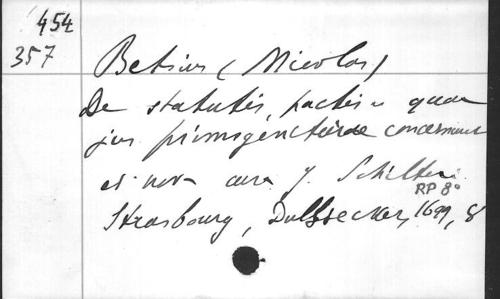 454
357
Betsius (Nicolas)
De statutis, pactis quae
jus primogeniturae concernunt
ex nova cura J. Schilteri
RP 8°
Strasbourg, Dulssecker, 1699, 8